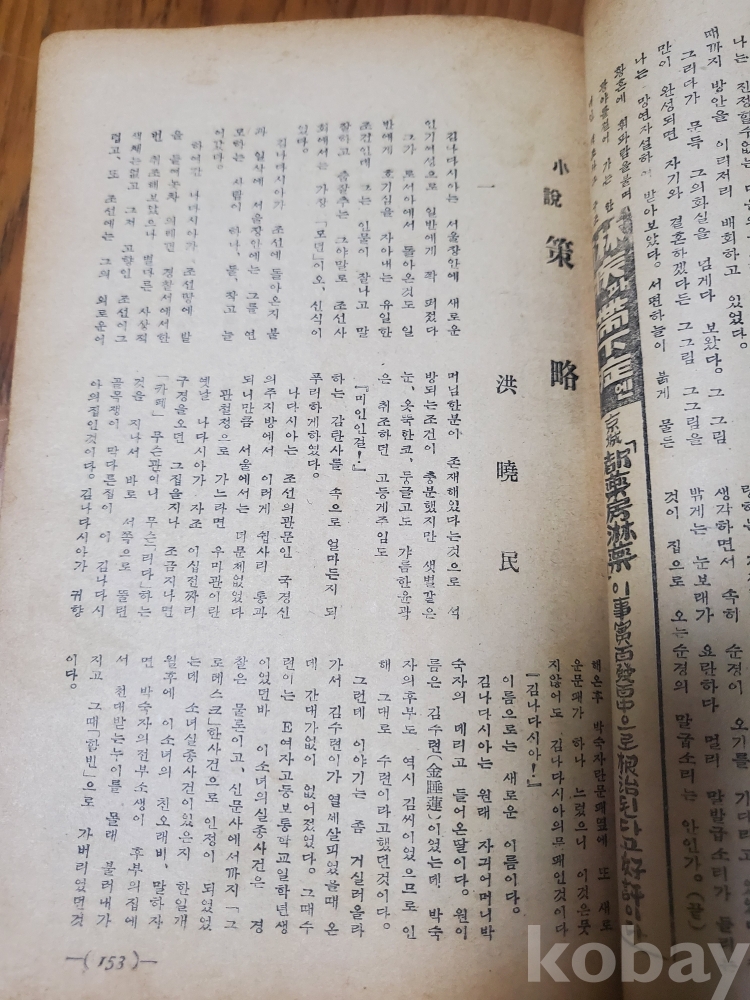 나는 진정할수없는
때까지 방안을 이리저리 배회하고 있었다。
그리다가 문득 그의화실을 넘게다 보았다。그 그림
만이 완성되면 자기와 결혼하겠다든 그그림 그그림을
나는 망연자실하여 받아보았다。서편하늘이 붉게 물든
황혼에 휘파람을불며
황야를걸어 가는 한
생각하면서 속히 순경이 오기를
밝게는 눈보래가 요란하다 멀리 말발급소리가
것이 집으로 오는순경의 말굽소리는 안인가。(끝)
帶下症엔
京城
藥房淋藥」이事實百發百中으로根治된다고好評이
小說
策略
洪曉民
一
김나다시아는 서울장안에 새로운
인기여성으로 일반에게 쫙 퍼졌다
그가 로서아에서 돌아온것도 일
반에게 호기심을 자아내는 유일한
조건인데 그는 인물이 잘나고 말
잘하고 춤잘추는 그야말로 조선사
회에서는 가장 「모던」이오、신식이
었다。
김나다시아가 조선에 돌아온지 불
과 일삭에 서울장안에는 그를 연
모하는 사람이 하나、둘、작고 늘
어갔다。
하여간 나다시아가 조선땅에 발
을 들여놓차 의례껀 경찰서에서한
번 취조해보았으나 별다른 사상적
색채는없고 그저 고향인 조선이그
럽고、또 조선에는 그의 외로운어
머님한분이 존재해있다는것으로 석
방되는조건이 충분했지만 샛별같은
눈、옷뚝한코、둥글고도 갸름한윤곽
은 취조하던 고등게주임도
『미인인걸!』
하는 감탄사를 속으로 얼마든지 되
푸리하게하였다。
나다시아는 조선의관문인 국경신
의주지방에서 이러게 쉽사리 통과
되니만큼 서울에서는 더문제없었다
관철정으로 가느라면 우미관이란
옛날 나다시아가 자조 이십전짜리
구경을오던 그집을지나 조금지나면
「카페」무슨관이니 무슨「리다」하는
것을 지나서 바로 서쪽으로 뚤린
골목쟁이 막다른집이 이 김나다시
아의집인것이다。김나다시아가 귀향
해온후 박숙자란문패옆에 또 새로
운문패가 하나 느렸으니 이것은뭇
지않어도 김나다시아의무패인것이다
『김나다시아!』
이름으로는 새로운 이름이다。
김나다시아는 원래 자긔어머니박
숙자의 데리고 들어온딸이다。원이
름은 김수련(金睡蓮)이었는데、박숙
자의후부도 역시 김씨이었으므로 인
해 그대로 수련이라고했던것이다。
그런데 이야기는 좀 거실러올라
가서 김수련이가 열세살피었을때 온
데 간대가없이 없어졌었다。그때수
련이는 E여자고등보통학교일학년생
이었던바 이소녀의실종사건은 경
찰은 물론이고、신문사에서까지「그
로테스크」한사건으로 인정이 되었었
는데 소녀실종사건이있은지 한일개
월후에 이소녀의 친오래비、말하자
면 박숙자의전부소생이 후부의집에
서 천대받는누이를 몰래 불러내가
지고 그때「할빈」으로 가버리었던것
이다。
—(153)—
kobay